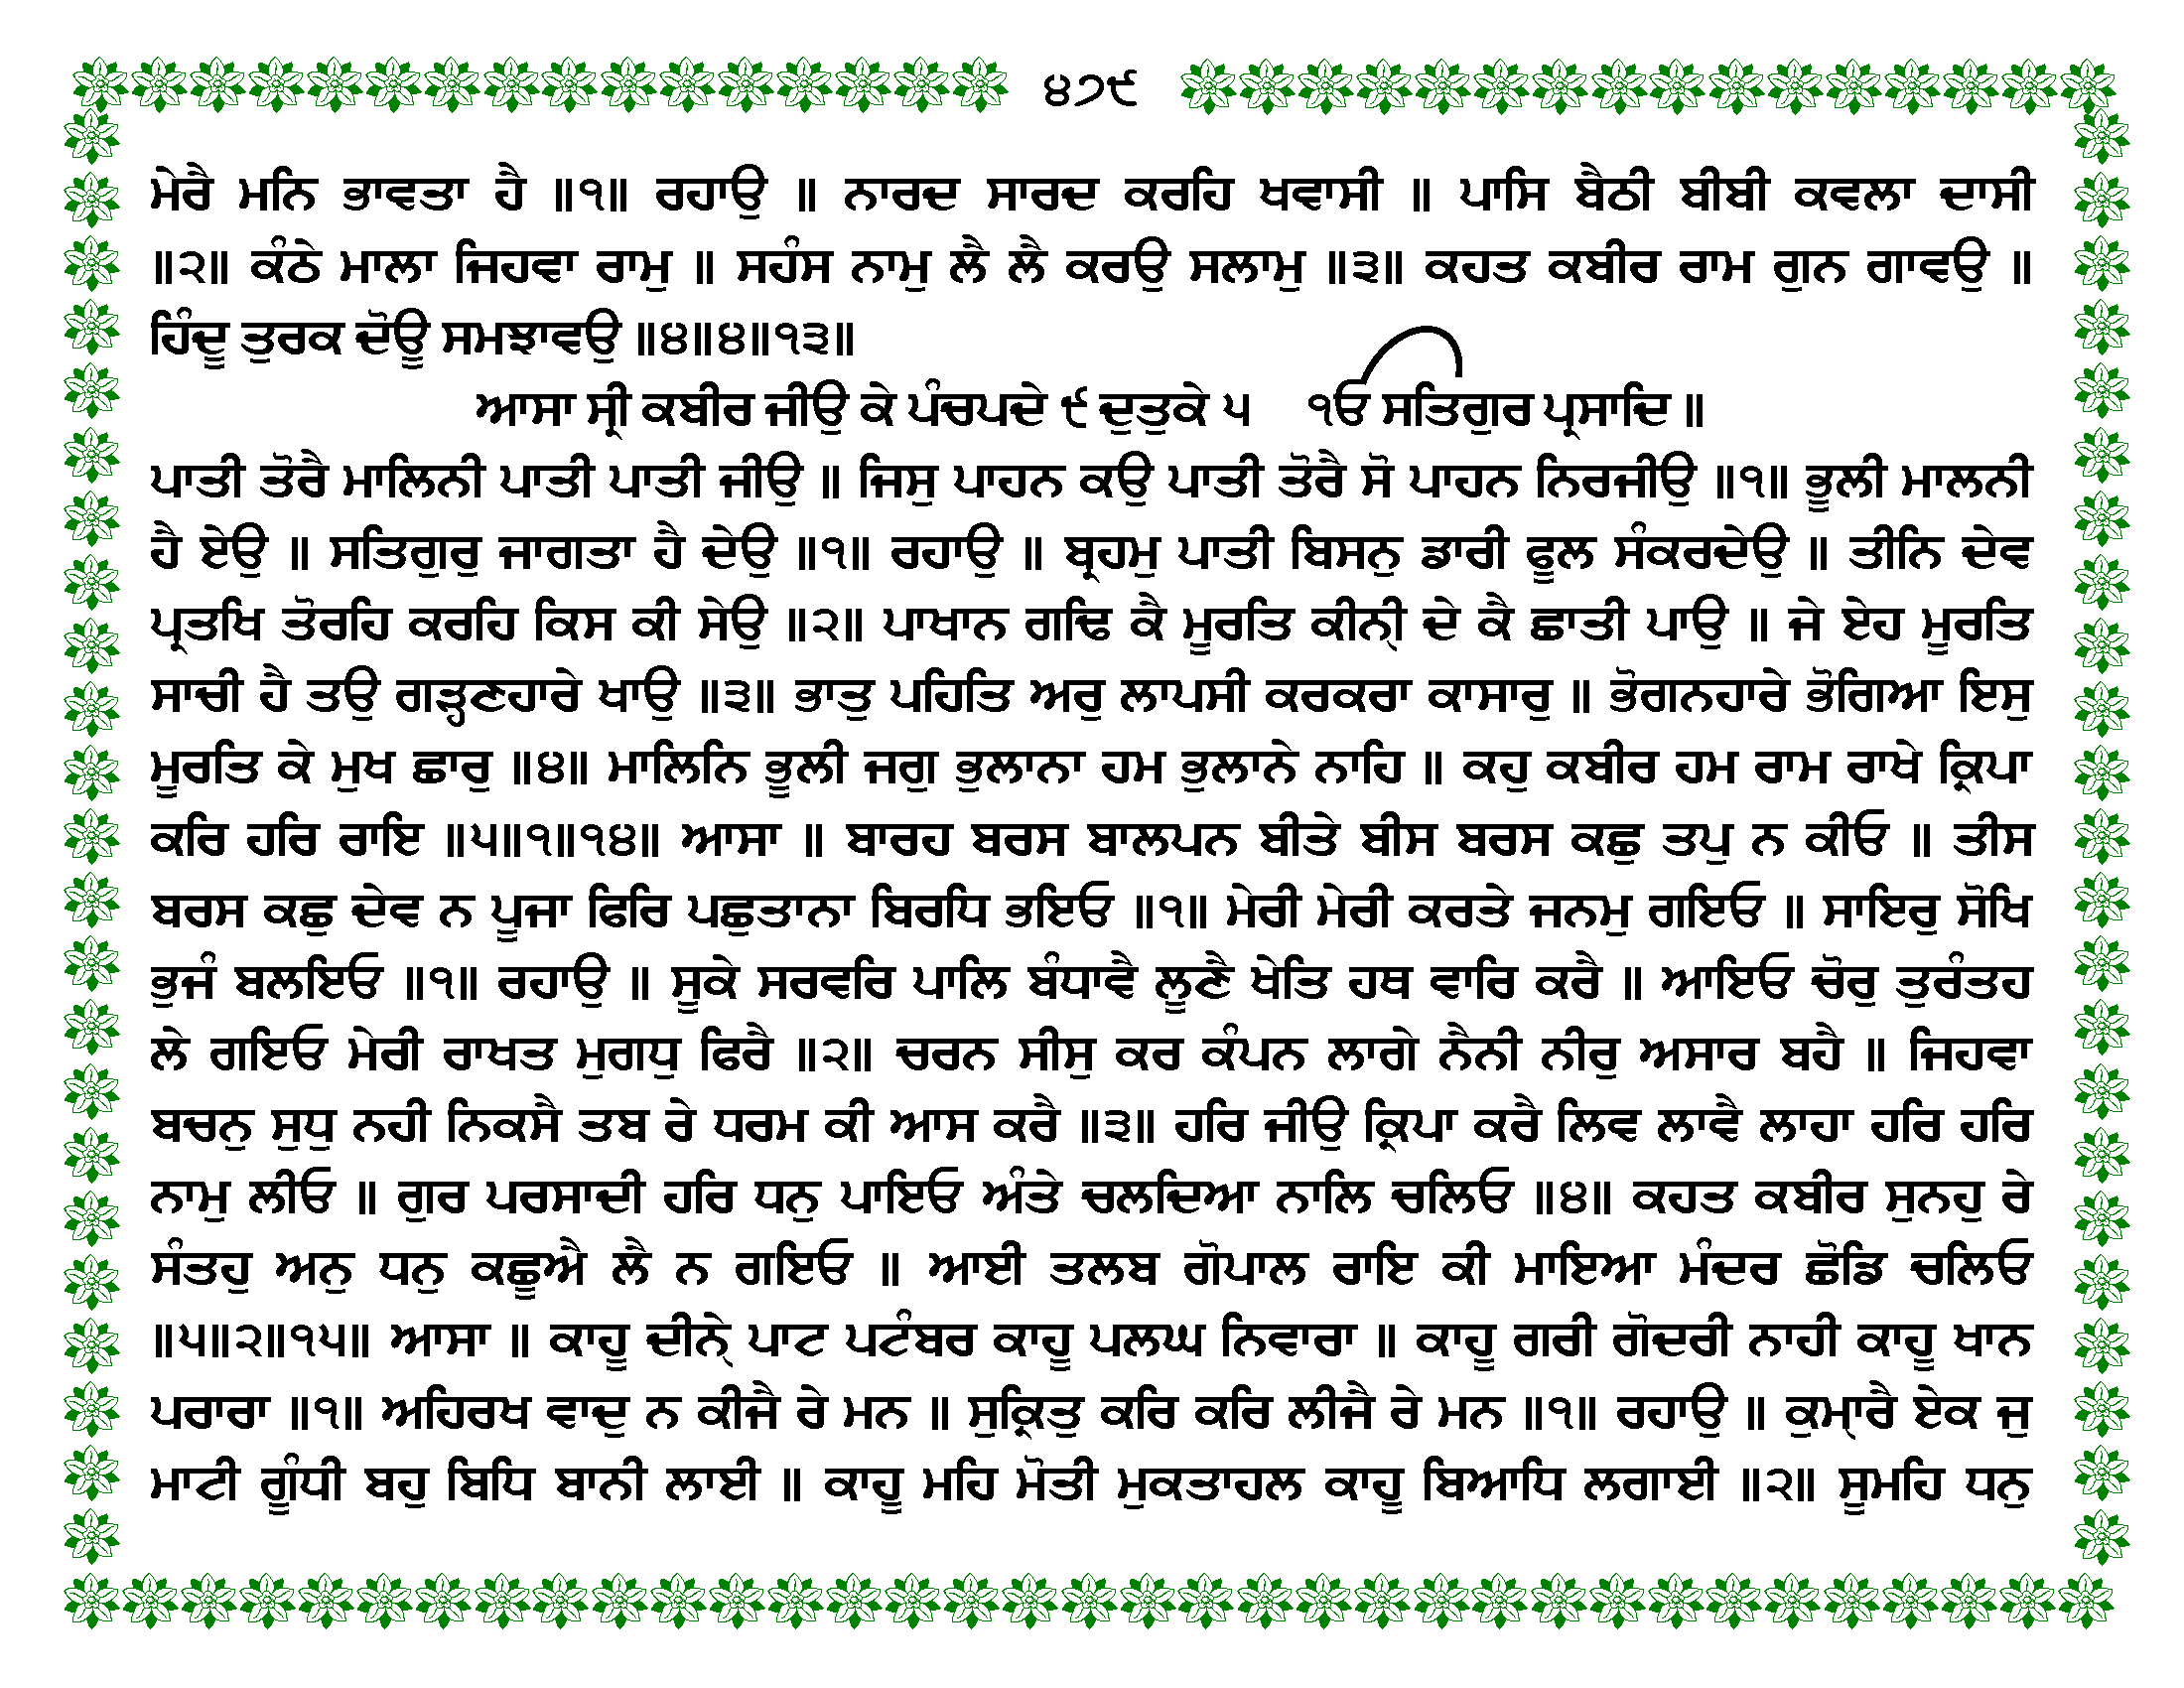 ੪੭੯
ਮੇਰੈ ਮਨਿ ਭਾਵਤਾ ਹੈ ॥੧॥ ਰਹਾਉ ॥ ਨਾਰਦ ਸਾਰਦ ਕਰਹਿ ਖਵਾਸੀ ॥ ਪਾਸਿ ਬੈਠੀ ਬੀਬੀ ਕਵਲਾ ਦਾਸੀ
॥੨॥ ਕੰਠੇ ਮਾਲਾ ਜਿਹਵਾ ਰਾਮੁ ॥ ਸਹੰਸ ਨਾਮੁ ਲੈ ਲੈ ਕਰਉ ਸਲਾਮੁ ॥੩॥ ਕਹਤ ਕਬੀਰ ਰਾਮ ਗੁਨ ਗਾਵਉ ॥
ਹਿੰਦੂ ਤੁਰਕ ਦੋਊ ਸਮਝਾਵਉ ॥੪॥੪॥੧੩॥
ਆਸਾ ਸ੍ਰੀ ਕਬੀਰ ਜੀਉ ਕੇ ਪੰਚਪਦੇ ੯ ਦੁਤੁਕੇ ੫ ੴ ਸਤਿਗੁਰ ਪ੍ਰਸਾਦਿ ॥
ਪਾਤੀ ਤੋਰੈ ਮਾਲਿਨੀ ਪਾਤੀ ਪਾਤੀ ਜੀਉ ॥ ਜਿਸੁ ਪਾਹਨ ਕਉ ਪਾਤੀ ਤੋਰੈ ਸੋ ਪਾਹਨ ਨਿਰਜੀਉ ॥੧॥ ਭੂਲੀ ਮਾਲਨੀ
ਹੈ ਏਉ ॥ ਸਤਿਗੁਰੁ ਜਾਗਤਾ ਹੈ ਦੇਉ ॥੧॥ ਰਹਾਉ ॥ ਬ੍ਰਹਮੁ ਪਾਤੀ ਬਿਸਨੁ ਡਾਰੀ ਫੂਲ ਸੰਕਰਦੇਉ ॥ ਤੀਨਿ ਦੇਵ
ਪ੍ਰਤਖਿ ਤੋਰਹਿ ਕਰਹਿ ਕਿਸ ਕੀ ਸੇਉ ॥੨॥ ਪਾਖਾਨ ਗਢਿ ਕੈ ਮੂਰਤਿ ਕੀਨੀ੍ ਦੇ ਕੈ ਛਾਤੀ ਪਾਉ ॥ ਜੇ ਏਹ ਮੂਰਤਿ
ਸਾਚੀ ਹੈ ਤਉ ਗੜ੍ਹਣਹਾਰੇ ਖਾਉ ॥੩॥ ਭਾਤੁ ਪਹਿਤਿ ਅਰੁ ਲਾਪਸੀ ਕਰਕਰਾ ਕਾਸਾਰੁ ॥ ਭੋਗਨਹਾਰੇ ਭੋਗਿਆ ਇਸੁ
ਮੂਰਤਿ ਕੇ ਮੁਖ ਛਾਰੁ ॥੪॥ ਮਾਲਿਨਿ ਭੂਲੀ ਜਗੁ ਭੁਲਾਨਾ ਹਮ ਭੁਲਾਨੇ ਨਾਹਿ ॥ ਕਹੁ ਕਬੀਰ ਹਮ ਰਾਮ ਰਾਖੇ ਕ੍ਰਿਪਾ
ਕਰਿ ਹਰਿ ਰਾਇ ॥੫॥੧॥੧੪॥ ਆਸਾ ॥ ਬਾਰਹ ਬਰਸ ਬਾਲਪਨ ਬੀਤੇ ਬੀਸ ਬਰਸ ਕਛੁ ਤਪੁ ਨ ਕੀਓ ॥ ਤੀਸ
ਬਰਸ ਕਛੁ ਦੇਵ ਨ ਪੂਜਾ ਫਿਰਿ ਪਛੁਤਾਨਾ ਬਿਰਧਿ ਭਇਓ ॥੧॥ ਮੇਰੀ ਮੇਰੀ ਕਰਤੇ ਜਨਮੁ ਗਇਓ ॥ ਸਾਇਰੁ ਸੋਖਿ
ਭੁਜੰ ਬਲਇਓ ॥੧॥ ਰਹਾਉ ॥ ਸੂਕੇ ਸਰਵਰਿ ਪਾਲਿ ਬੰਧਾਵੈ ਲੂਣੈ ਖੇਤਿ ਹਥ ਵਾਰਿ ਕਰੈ ॥ ਆਇਓ ਚੋਰੁ ਤੁਰੰਤਹ
ਲੇ ਗਇਓ ਮੇਰੀ ਰਾਖਤ ਮੁਗਧੁ ਫਿਰੈ ॥੨॥ ਚਰਨ ਸੀਸੁ ਕਰ ਕੰਪਨ ਲਾਗੇ ਨੈਨੀ ਨੀਰੁ ਅਸਾਰ ਬਹੈ ॥ ਜਿਹਵਾ
ਬਚਨੁ ਸੁਧੁ ਨਹੀ ਨਿਕਸੈ ਤਬ ਰੇ ਧਰਮ ਕੀ ਆਸ ਕਰੈ ॥੩॥ ਹਰਿ ਜੀਉ ਕ੍ਰਿਪਾ ਕਰੈ ਲਿਵ ਲਾਵੈ ਲਾਹਾ ਹਰਿ ਹਰਿ
ਨਾਮੁ ਲੀਓ ॥ ਗੁਰ ਪਰਸਾਦੀ ਹਰਿ ਧਨੁ ਪਾਇਓ ਅੰਤੇ ਚਲਦਿਆ ਨਾਲਿ ਚਲਿਓ ॥੪॥ ਕਹਤ ਕਬੀਰ ਸੁਨਹੁ ਰੇ
ਸੰਤਹੁ ਅਨੁ ਧਨੁ ਕਛੂਐ ਲੈ ਨ ਗਇਓ ॥ ਆਈ ਤਲਬ ਗੋਪਾਲ ਰਾਇ ਕੀ ਮਾਇਆ ਮੰਦਰ ਛੋਡਿ ਚਲਿਓ
॥੫॥੨॥੧੫॥ ਆਸਾ ॥ ਕਾਹੂ ਦੀਨੇ੍ ਪਾਟ ਪਟੰਬਰ ਕਾਹੂ ਪਲਘ ਨਿਵਾਰਾ ॥ ਕਾਹੂ ਗਰੀ ਗੋਦਰੀ ਨਾਹੀ ਕਾਹੂ ਖਾਨ
ਪਰਾਰਾ ॥੧॥ ਅਹਿਰਖ ਵਾਦੁ ਨ ਕੀਜੈ ਰੇ ਮਨ ॥ ਸੁਕ੍ਰਿਤੁ ਕਰਿ ਕਰਿ ਲੀਜੈ ਰੇ ਮਨ ॥੧॥ ਰਹਾਉ ॥ ਕੁਮਾ੍ਰੈ ਏਕ ਜੁ
ਮਾਟੀ ਗੂੰਧੀ ਬਹੁ ਬਿਧਿ ਬਾਨੀ ਲਾਈ ॥ ਕਾਹੂ ਮਹਿ ਮੋਤੀ ਮੁਕਤਾਹਲ ਕਾਹੂ ਬਿਆਧਿ ਲਗਾਈ ॥੨॥ ਸੂਮਹਿ ਧਨੁ